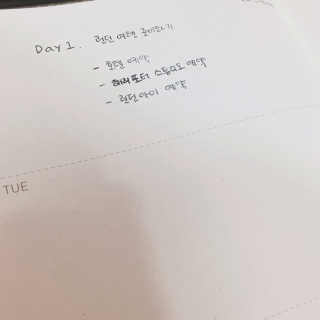 Day 1. 런던 여행 준비하기
- 호텔 예약
- 해리포터 스튜디오 예약
- 런던아이 예약
TUE